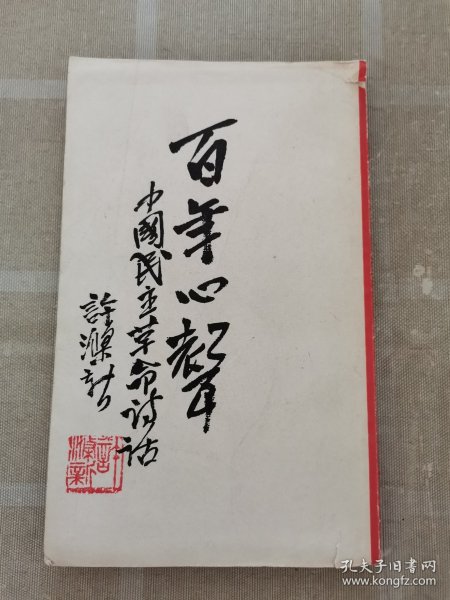 百年心聲
中國民主革命诗话
許滌新
許滌新印
孔夫子旧书网
www.kongfz.com